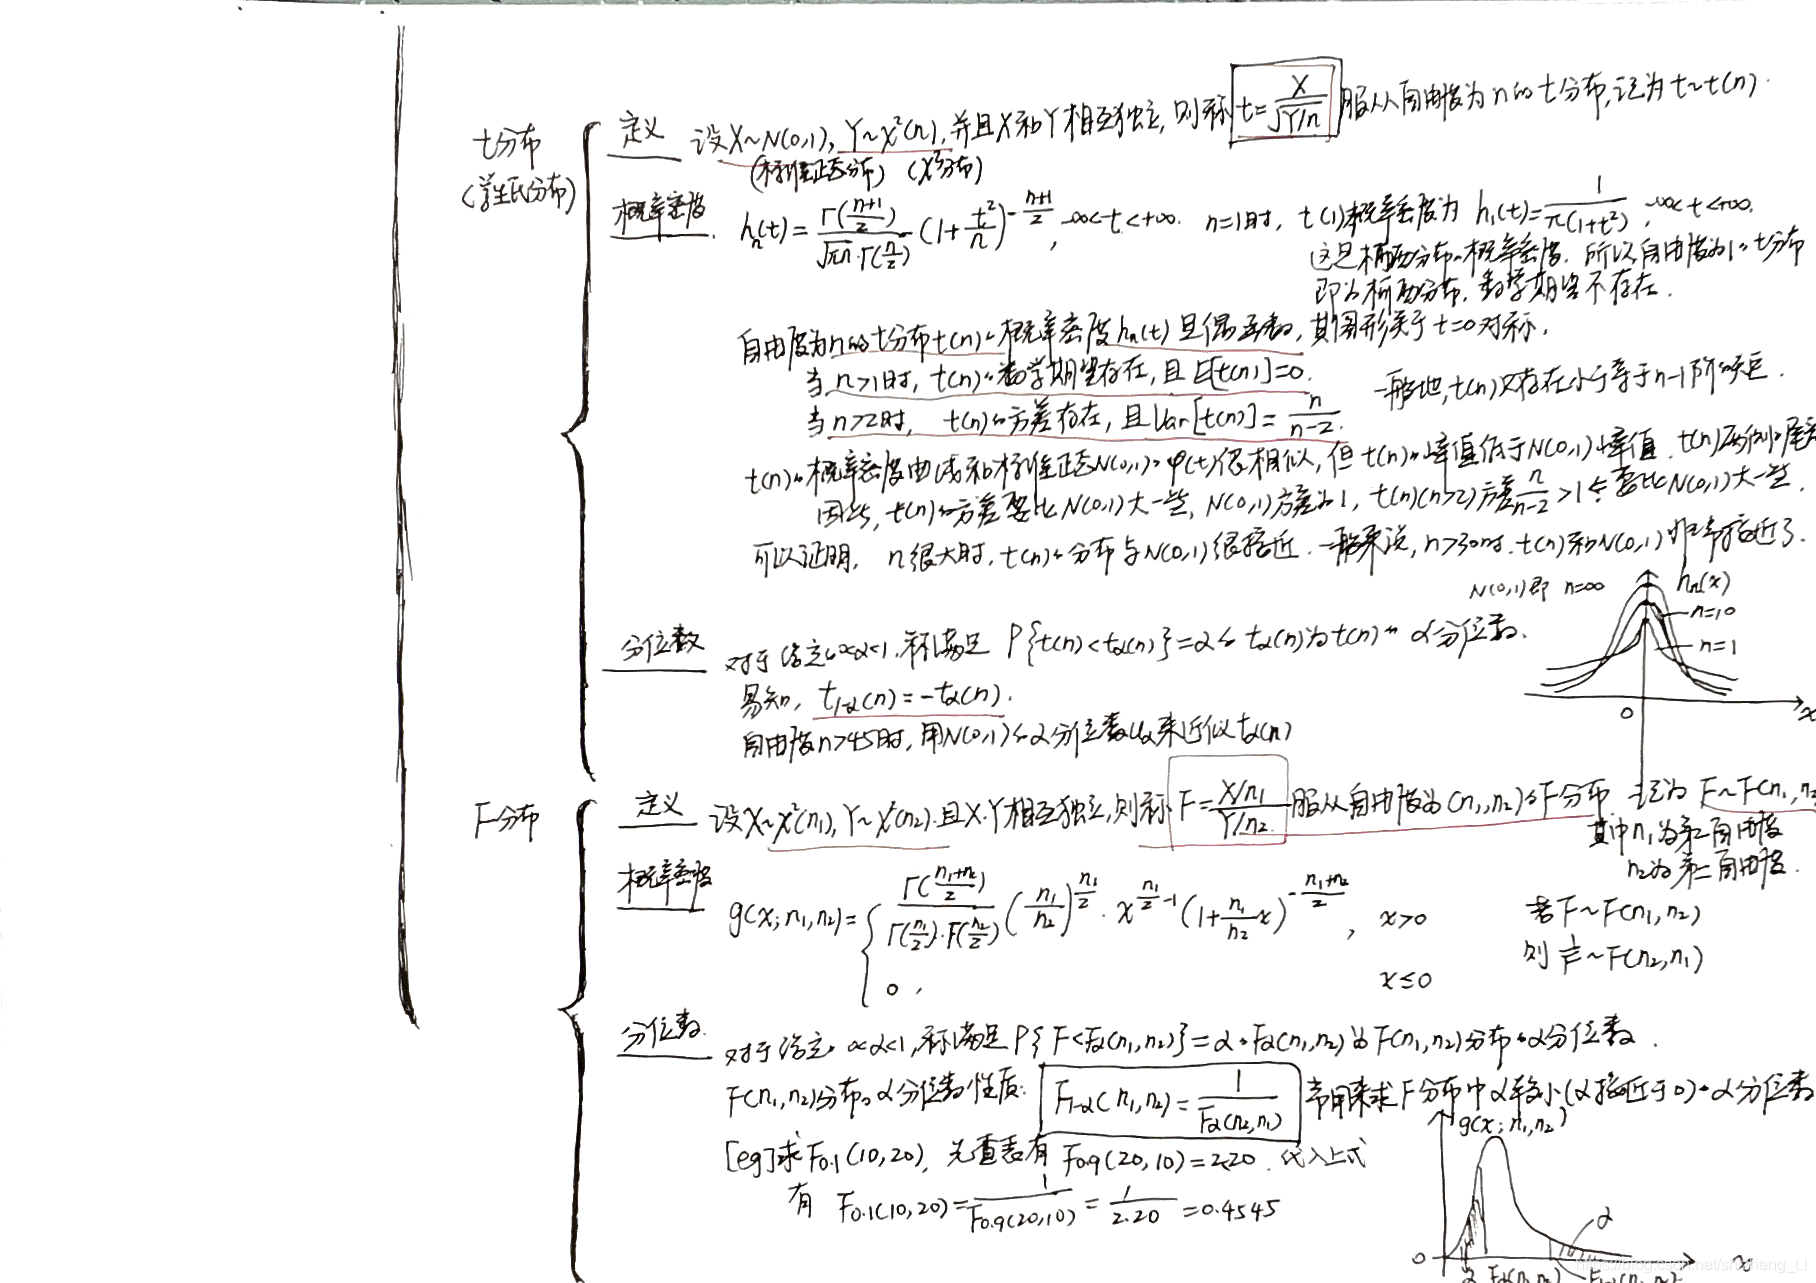 t分布
(学生氏分布)
定义 设X~N(0,1), Y~χ²(n), 并且X和Y相互独立, 则称 t=X/√(Y/n) 服从自由度为n的t分布, 记为t~t(n).
(标准正态分布) (χ²分布)
概率密度. hn(t)=Γ((n+1)/2)/(√(πn)·Γ(n/2)) (1+t²/n)^(-(n+1)/2), -∞<t<+∞. n=1时, t(1)概率密度为 h₁(t)=1/(π(1+t²)), -∞<t<+∞.
这是柯西分布的概率密度. 所以自由度为1的t分布
即为柯西分布, 数学期望不存在.
自由度为n的t分布t(n)的概率密度hn(t)且偶函数, 其图形关于t=0对称.
当n>1时, t(n)的数学期望存在, 且E[t(n)]=0.
一般地, t(n)只存在小于等于n-1阶的矩.
当n>2时, t(n)的方差存在, 且Var[t(n)]=n/(n-2).
t(n)的概率密度曲线和标准正态N(0,1)的φ(t)很相似, 但t(n)的峰值低于N(0,1)的峰值. t(n)两侧的尾
因此, t(n)的方差要比N(0,1)大一些, N(0,1)方差为1, t(n)(n>2)方差n/(n-2)>1 要比N(0,1)大一些.
可以证明, n很大时, t(n)的分布与N(0,1)很接近. 一般来说, n>30时, t(n)和N(0,1)非常接近了.
N(0,1)即 n=∞
hn(x)
n=10
n=1
0
x
分位数 对于给定0<α<1, 称满足 P{t(n)<tα(n)}=α的 tα(n)为t(n)的 α分位数.
易知, t₁₋α(n)=-tα(n).
自由度n>45时, 用N(0,1)的α分位数uα来近似tα(n)
F分布
定义 设X~χ²(n₁), Y~χ²(n₂). 且X.Y相互独立, 则称 F=(X/n₁)/(Y/n₂) 服从自由度为(n₁,n₂)的F分布 记为 F~F(n₁,n₂
其中n₁为第一自由度
n₂为第二自由度.
概率密度 g(x;n₁,n₂)={Γ((n₁+n₂)/2)/(Γ(n₁/2)·Γ(n₂/2)) (n₁/n₂)^(n₁/2)·x^(n₁/2-1)(1+(n₁/n₂)x)^(-(n₁+n₂)/2), x>0
0, x≤0
若F~F(n₁,n₂)
则1/F~F(n₂,n₁)
分位数. 对于给定0<α<1, 称满足P{F<Fα(n₁,n₂)}=α的Fα(n₁,n₂)为F(n₁,n₂)分布的α分位数.
F(n₁,n₂)分布的α分位数性质: F₁₋α(n₁,n₂)=1/Fα(n₂,n₁) 常用来求F分布中α较小(α接近于0)的α分位数
[eg]求F0.1(10,20), 先查表有 F0.9(20,10)=2.20. 代入上式
有 F0.1(10,20)=1/F0.9(20,10)=1/2.20=0.4545
g(x;n₁,n₂)
α
0
x
α
https://blog.csdn.net/shizheng_Li